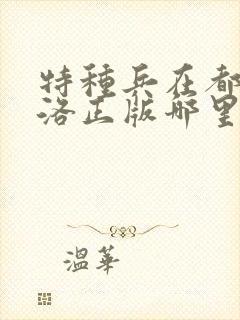 特種兵在都
洛正版哪里
溫華